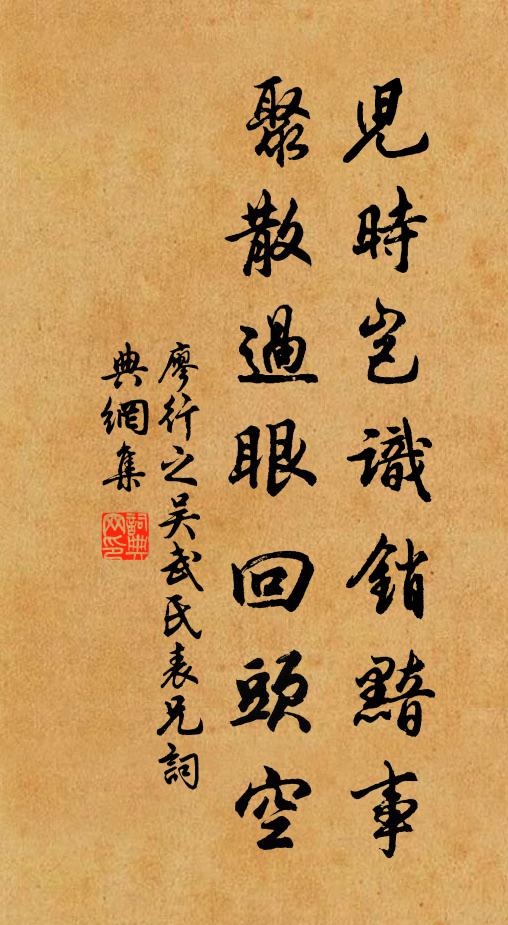 兒時豈識銷黯事
聚散過眼回頭空
廖行之吴武氏表兄詞
典網集
詞典网印